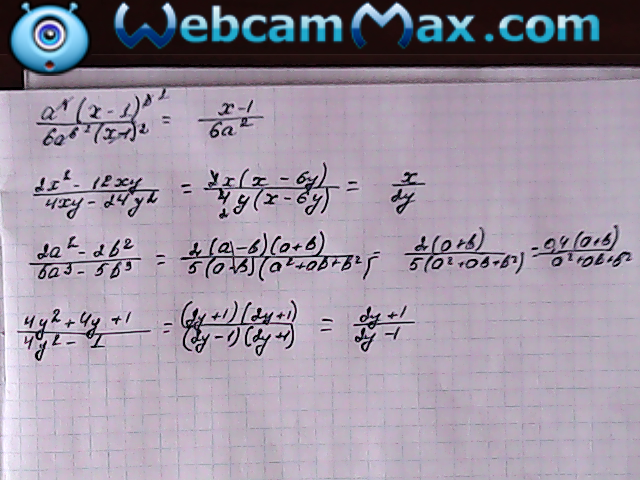 WebcamMax.com
a⁴(x-1)³ / 6a⁶(x-1)² = x-1 / 6a²
2x² - 12xy / 4xy - 24y² = 2x(x - 6y) / 4y(x - 6y) = x / 2y
2a² - 2b² / 5a³ - 5b³ = 2(a-b)(a+b) / 5(a-b)(a²+ab+b²) = 2(a+b) / 5(a²+ab+b²) = 0,4(a+b) / a²+ab+b²
4y² + 4y + 1 / 4y² - 1 = (2y+1)(2y+1) / (2y-1)(2y+1) = 2y+1 / 2y-1